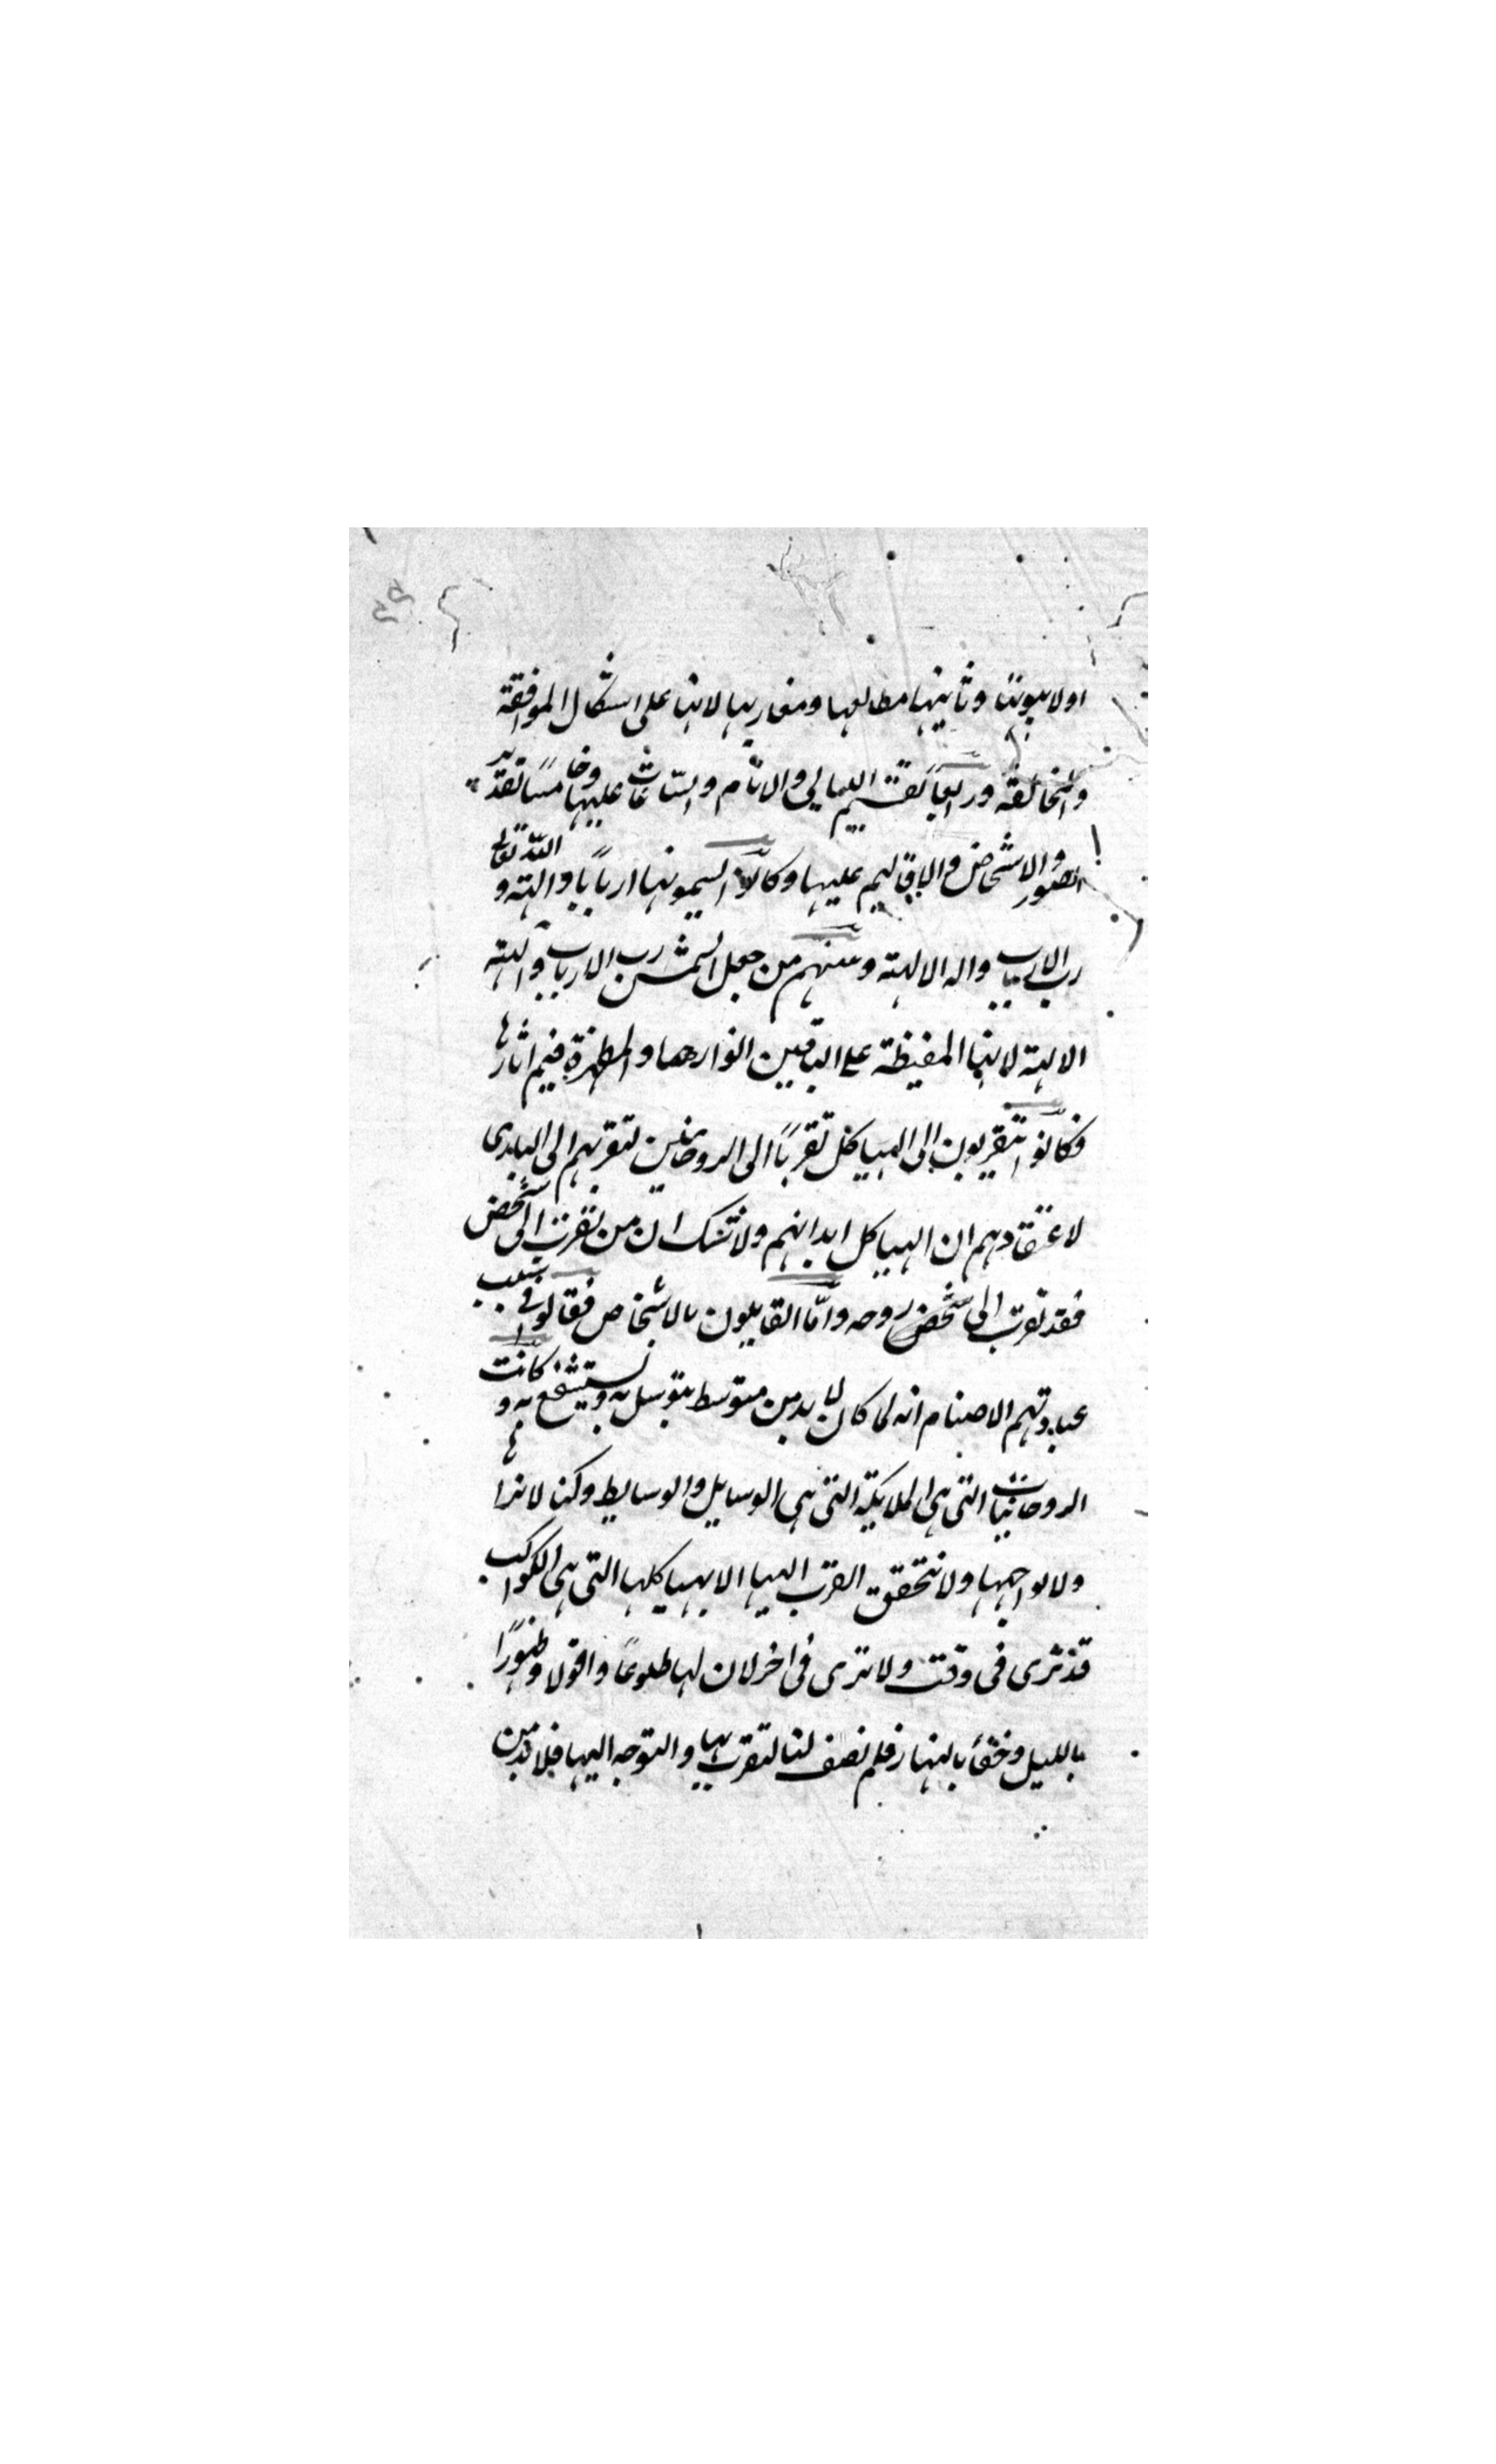 اولا بيوتها وثانيها مطالعها ومغاربها لانها على اشكال الموافقة
والمخالفة ورابعا تقسيم الليالي والايام والساعات عليها وخامسا تقدير
الصور والاشخاص والاقاليم عليها وكانوا يسمونها اربابا والهة و الله تعالى
رب الارباب واله الالهة ومنهم من جعل الشمس رب الارباب وآلهة
الالهة لانها المفيظة على الباقين انوارها والمظهرة فيهم اثارها
فكانوا يتقربون الى الهياكل تقربا الى الروحانيين لتقربهم الى البارى
لاعتقادهم ان الهياكل ابدانهم ولا شك ان من تقرب الى شخص
فقد تقرب الى شخص روحه واما القايلون بالاشخاص فقالوا في سبب
عبادتهم الاصنام انه لما كان لا بد من متوسط يتوسل به ويستشفع به و كانت
الروحانيات التى هى الملايكة التى هى الوسايل والوسايط وكنا لا نراها
ولا نواجهها ولا نتحقق القرب اليها الا بهياكلها التى هى الكواكب
قد ترى فى وقت ولا ترى فى اخر لان لها طلوعا وافولا وظهورا
بالليل وخفأ بالنهار فلم نصف لنا لتقرب بها والتوجه اليها فلا بد من